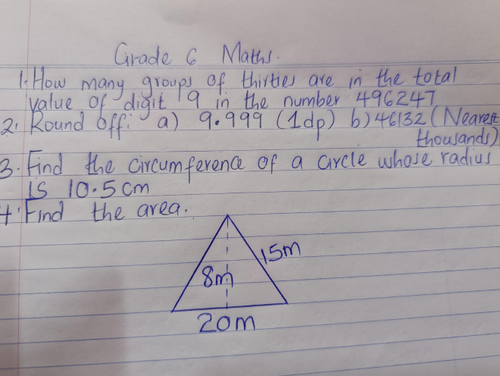 Grade 6 Maths.
1. How many groups of thirties are in the total
value of digit 9 in the number 496247
2. Round off: a) 9.999 (1dp) b) 46132 (Nearest
thousands)
3. Find the circumference of a circle whose radius
is 10.5cm
4. Find the area.
15m
8m
20m